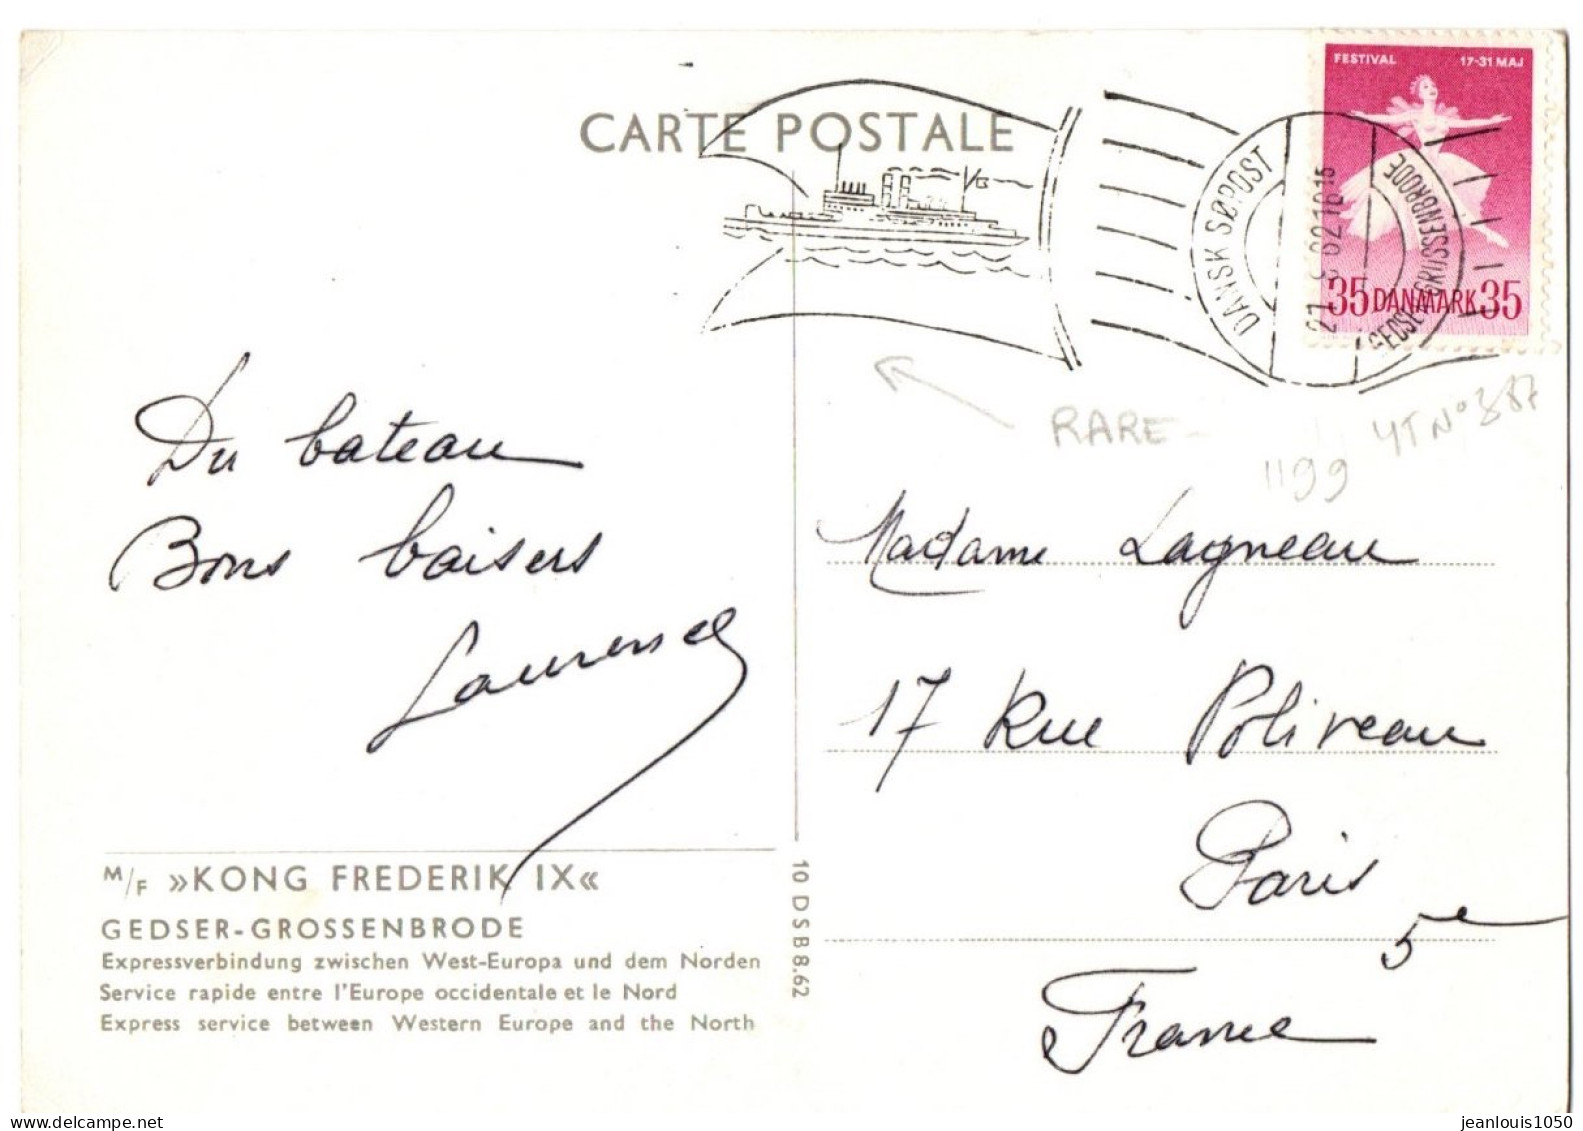 CARTE POSTALE
FESTIVAL 17-31 MAJ
35 DANMARK 35
DANSK SØPOST
GEDSER-GROSSENBRODE
RARE
1199
YT N° 387
Du bateau
Bons baisers
Laurence
Madame Lagneau
17 Rue Poliveau
Paris
5e
France
M/F »KONG FREDERIK IX«
GEDSER-GROSSENBRODE
Expressverbindung zwischen West-Europa und dem Norden
Service rapide entre l'Europe occidentale et le Nord
Express service between Western Europe and the North
10 DSB 8.62
jeanlouis1050